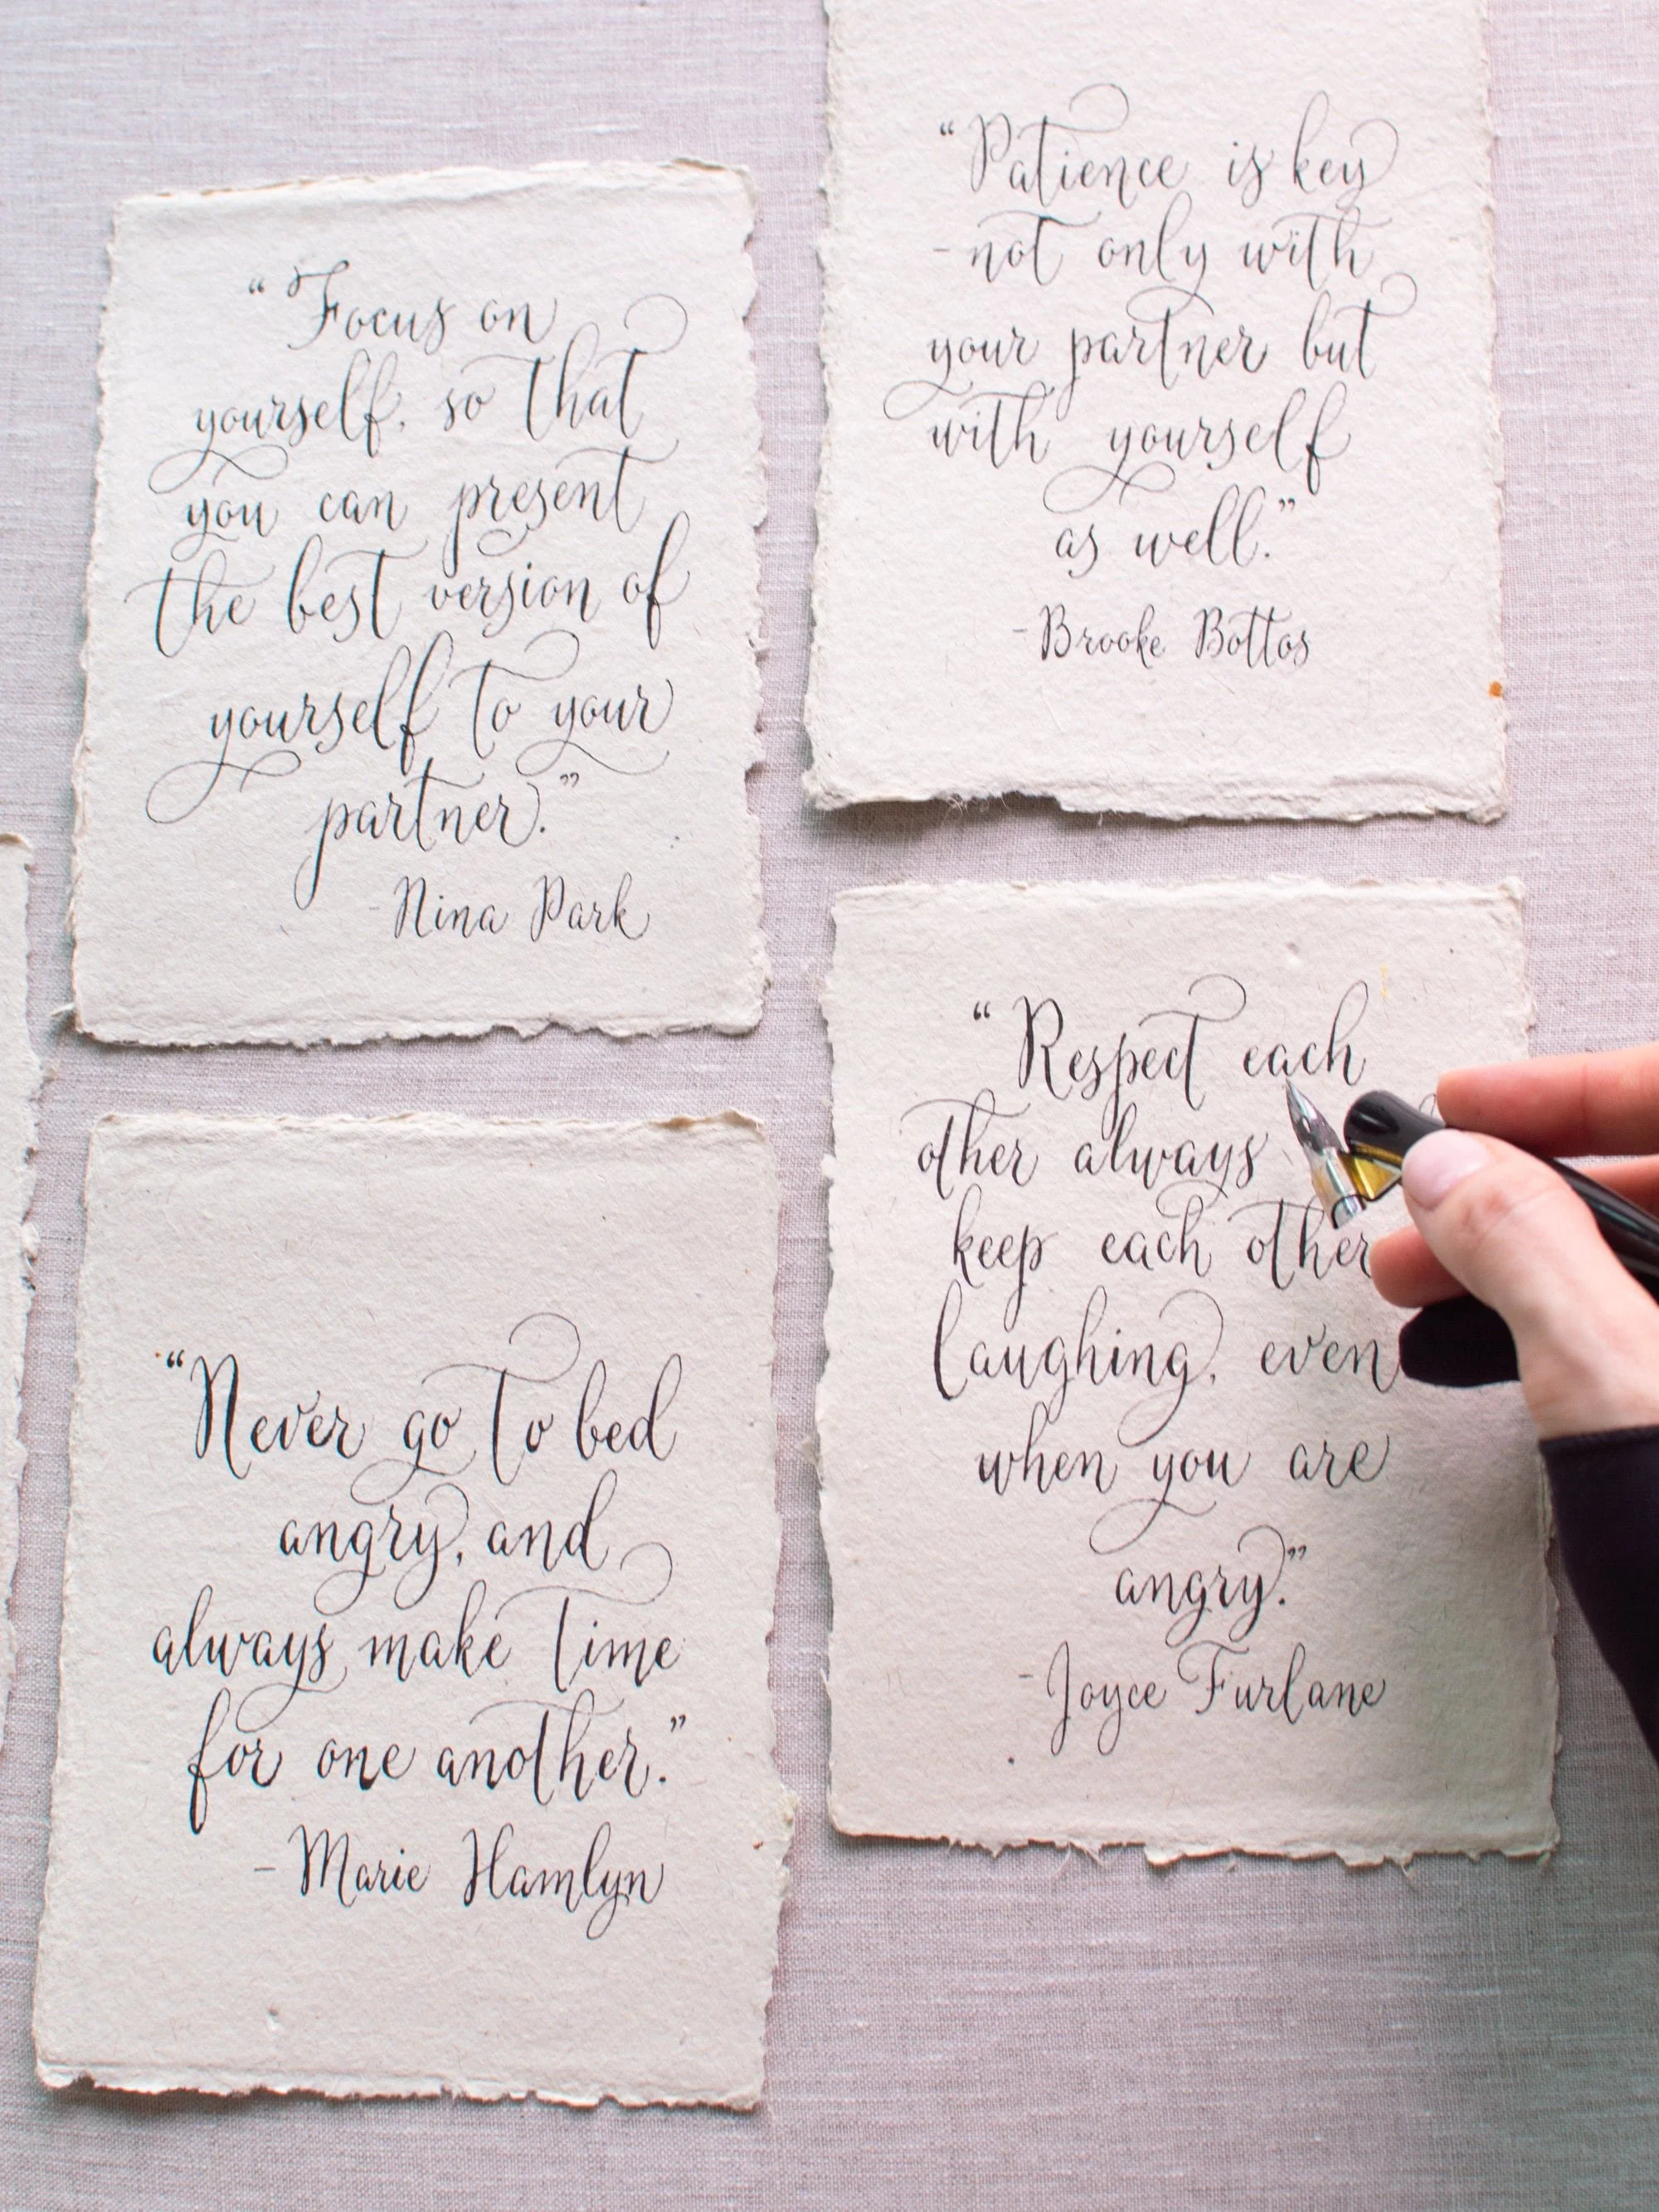 “Focus on
yourself, so that
you can present
the best version of
yourself to your
partner.”
-Nina Park
“Patience is key
-not only with
your partner but
with yourself
as well.”
-Brooke Bottos
“Never go to bed
angry, and
always make time
for one another.”
-Marie Hamlyn
“Respect each
other always
keep each other
laughing, even
when you are
angry.”
-Joyce Furlane